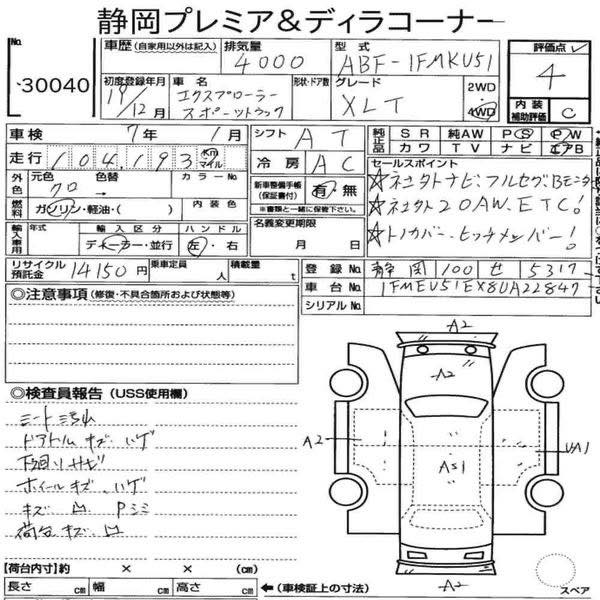 静岡プレミア&ディラコーナー
No.
30040
車歴 (自家用以外は記入)
排気量
4000
型式
ABF-1FMKU51
評価点
4
初度登録年月
19/12月
車名
エクスプローラー
スポーツトラック
形状・ドア数
グレード
XLT
2WD
4WD
内装
補助評価
C
車検
7年
1月
シフト
AT
純正品
SR
純AW
PS
PW
カワ
TV
ナビ
エアB
走行
104,193
km
マイル
冷房
AC
セールスポイント
外色
元色
色替
カラーNo.
クロ
→
新車整備手帳
(保証書付)
有・無
※書類と一緒に保管下さい。
☆社外ナビ、フルセグ、Bモニター
☆社外20AW、ETC!
☆トノカバー、ヒッチメンバー!
燃料
ガソリン・軽油・( )
内装色
名義変更期限
月 日
輸入車用
年式
輸入区分
ハンドル
ディーラー・並行
左・右
リサイクル
預託金
14150円
乗車定員
人
積載量
t
登録No.
静岡
100
せ
5317
車台No.
1FMEU51EX8UA22847
シリアルNo.
◎注意事項 (修復・不具合箇所および状態等)
◎検査員報告 (USS使用欄)
ドアトリム キズ ハゲ
下廻リサビ
ホイールキズ ハゲ
キズ 凹 Pシミ
荷台キズ 凹
A2
A2
A2
UA1
AS1
A2
スペア
【荷台内寸】約 × × (cm)
長さ cm
幅 cm
高さ cm
←(車検証上の寸法)